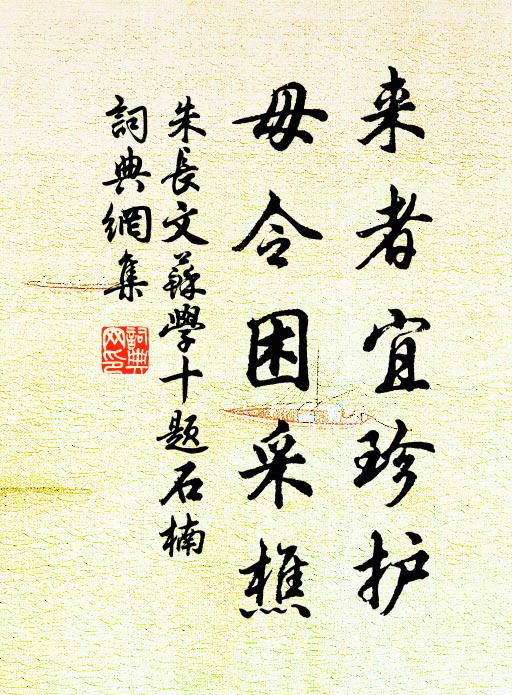 来者宜珍护
毋令困采樵
朱長文蘇學十题石楠
詞典網集
詞典
网印